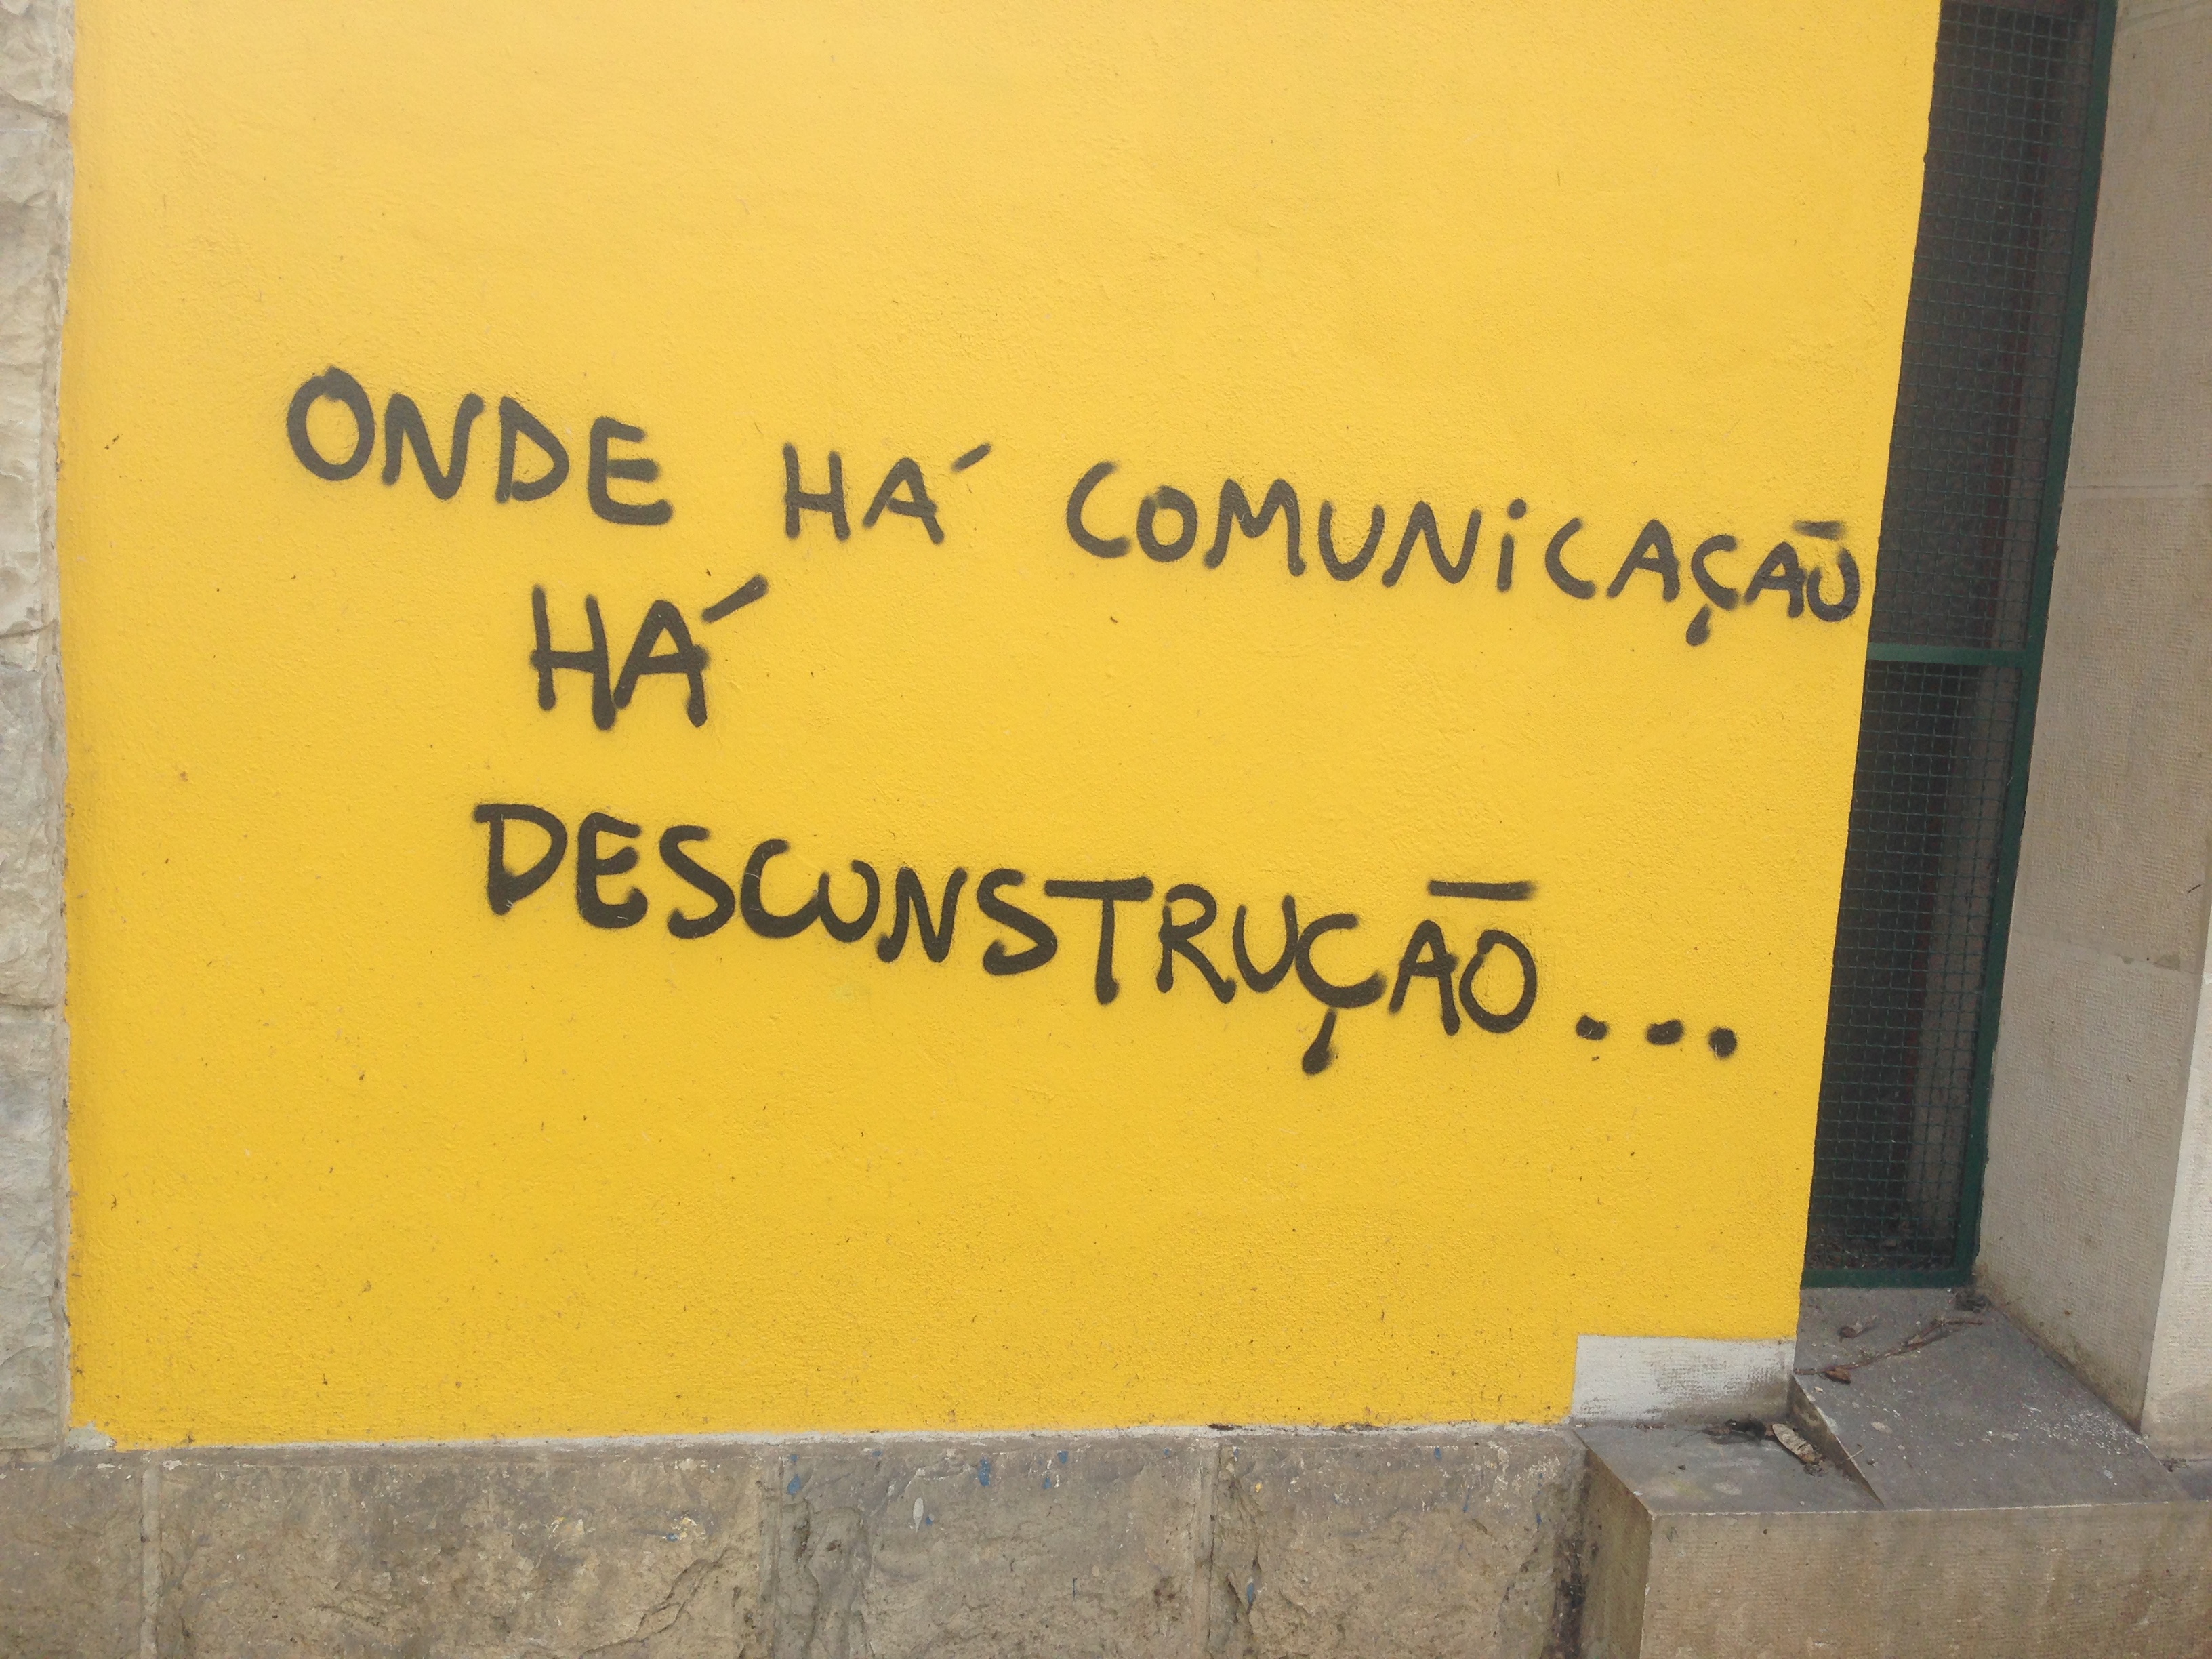 ONDE HÁ COMUNiCAÇÃO
HÁ
DESCONSTRUÇÃO...